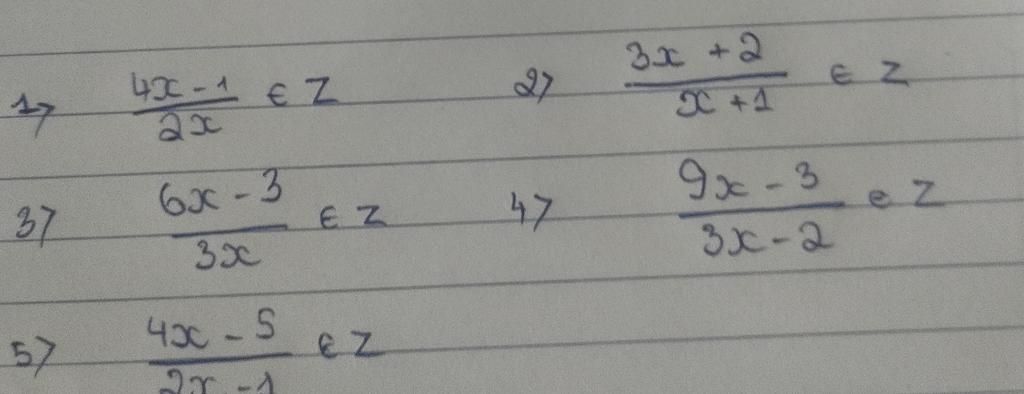 1) (4x - 1)/(2x) ∈ Z 2) (3x + 2)/(x + 1) ∈ Z
3) (6x - 3)/(3x) ∈ Z 4) (9x - 3)/(3x - 2) ∈ Z
5) (4x - 5)/(2x - 1) ∈ Z